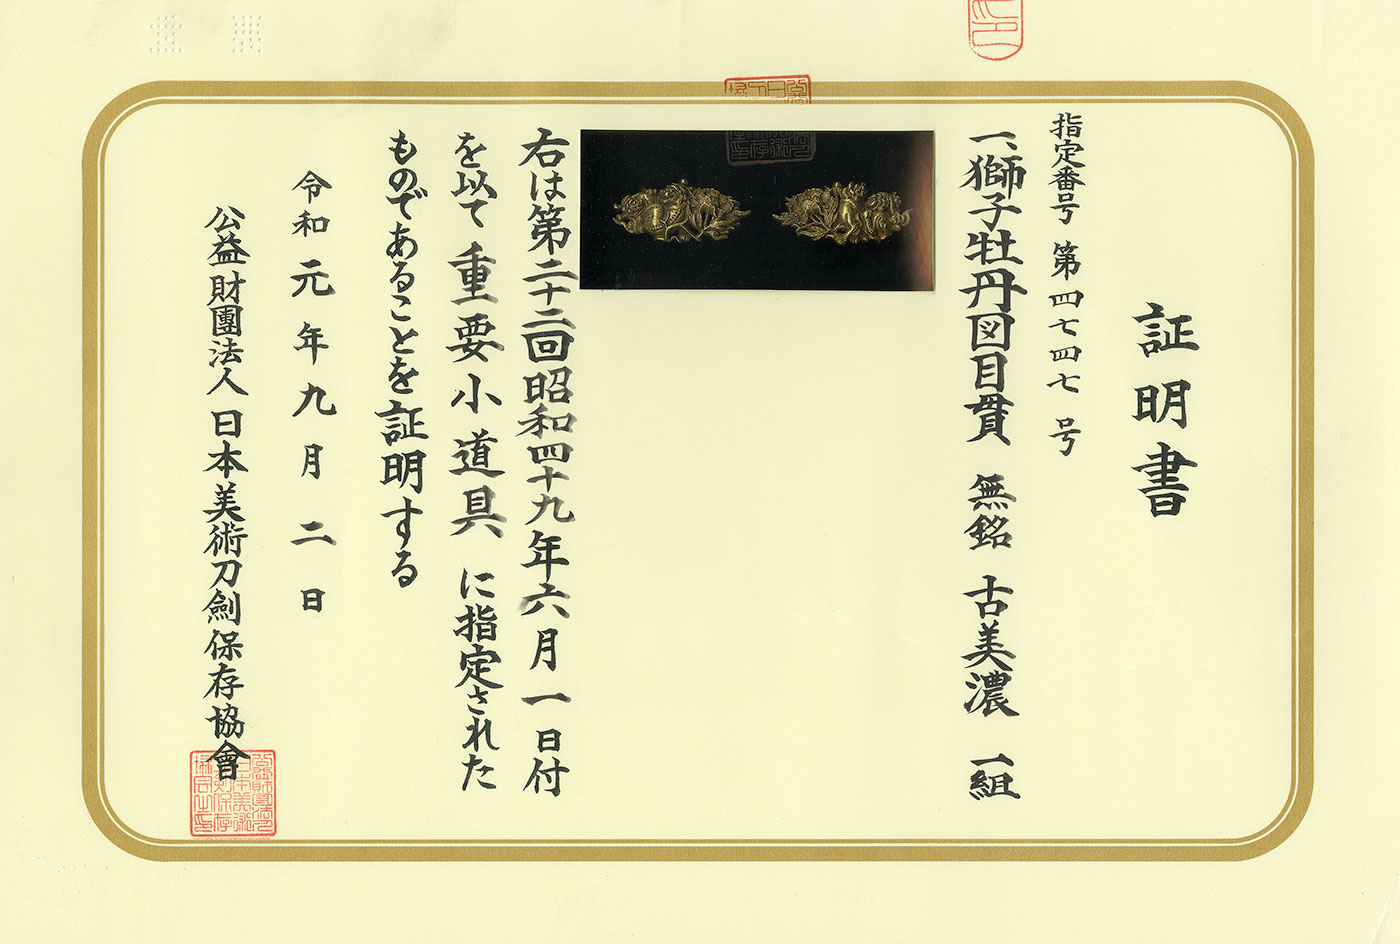 証明書
指定番号 第四七四七号
一、獅子牡丹図目貫 無銘 古美濃 一組
右は第二十二回昭和四十九年六月一日付
を以て重要小道具に指定された
ものであることを証明する
令和元年九月二日
公益財團法人日本美術刀劍保存協會